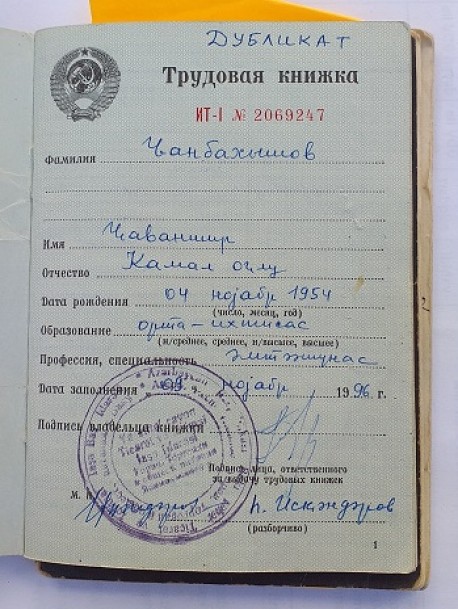 ДУБЛИКАТ
Трудовая книжка
ИТ-I № 2069247
Фамилия Ҹанбахышов
Имя Ҹаваншир
Отчество Камал оглу
Дата рождения 04 нојабр 1954
(число, месяц, год)
Образование орта-ихтисас
(н/среднее, среднее, н/высшее, высшее)
Профессия, специальность әмтәәшүнас
Дата заполнения 09 нојабр 1996 г.
Подпись владельца книжки
Подпись лица, ответственного
за выдачу трудовых книжек
М. П.
һ. Искәндәров
(разборчиво)
1